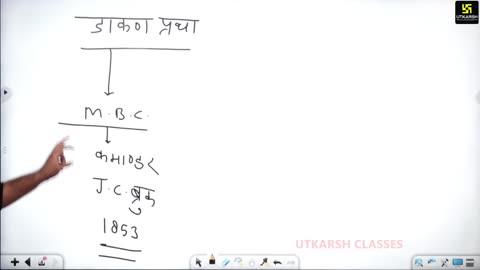 डाकण प्रथा
UTKARSH
M.B.C.
कमाण्डर
J.C. ब्रुक
1853
UTKARSH CLASSES